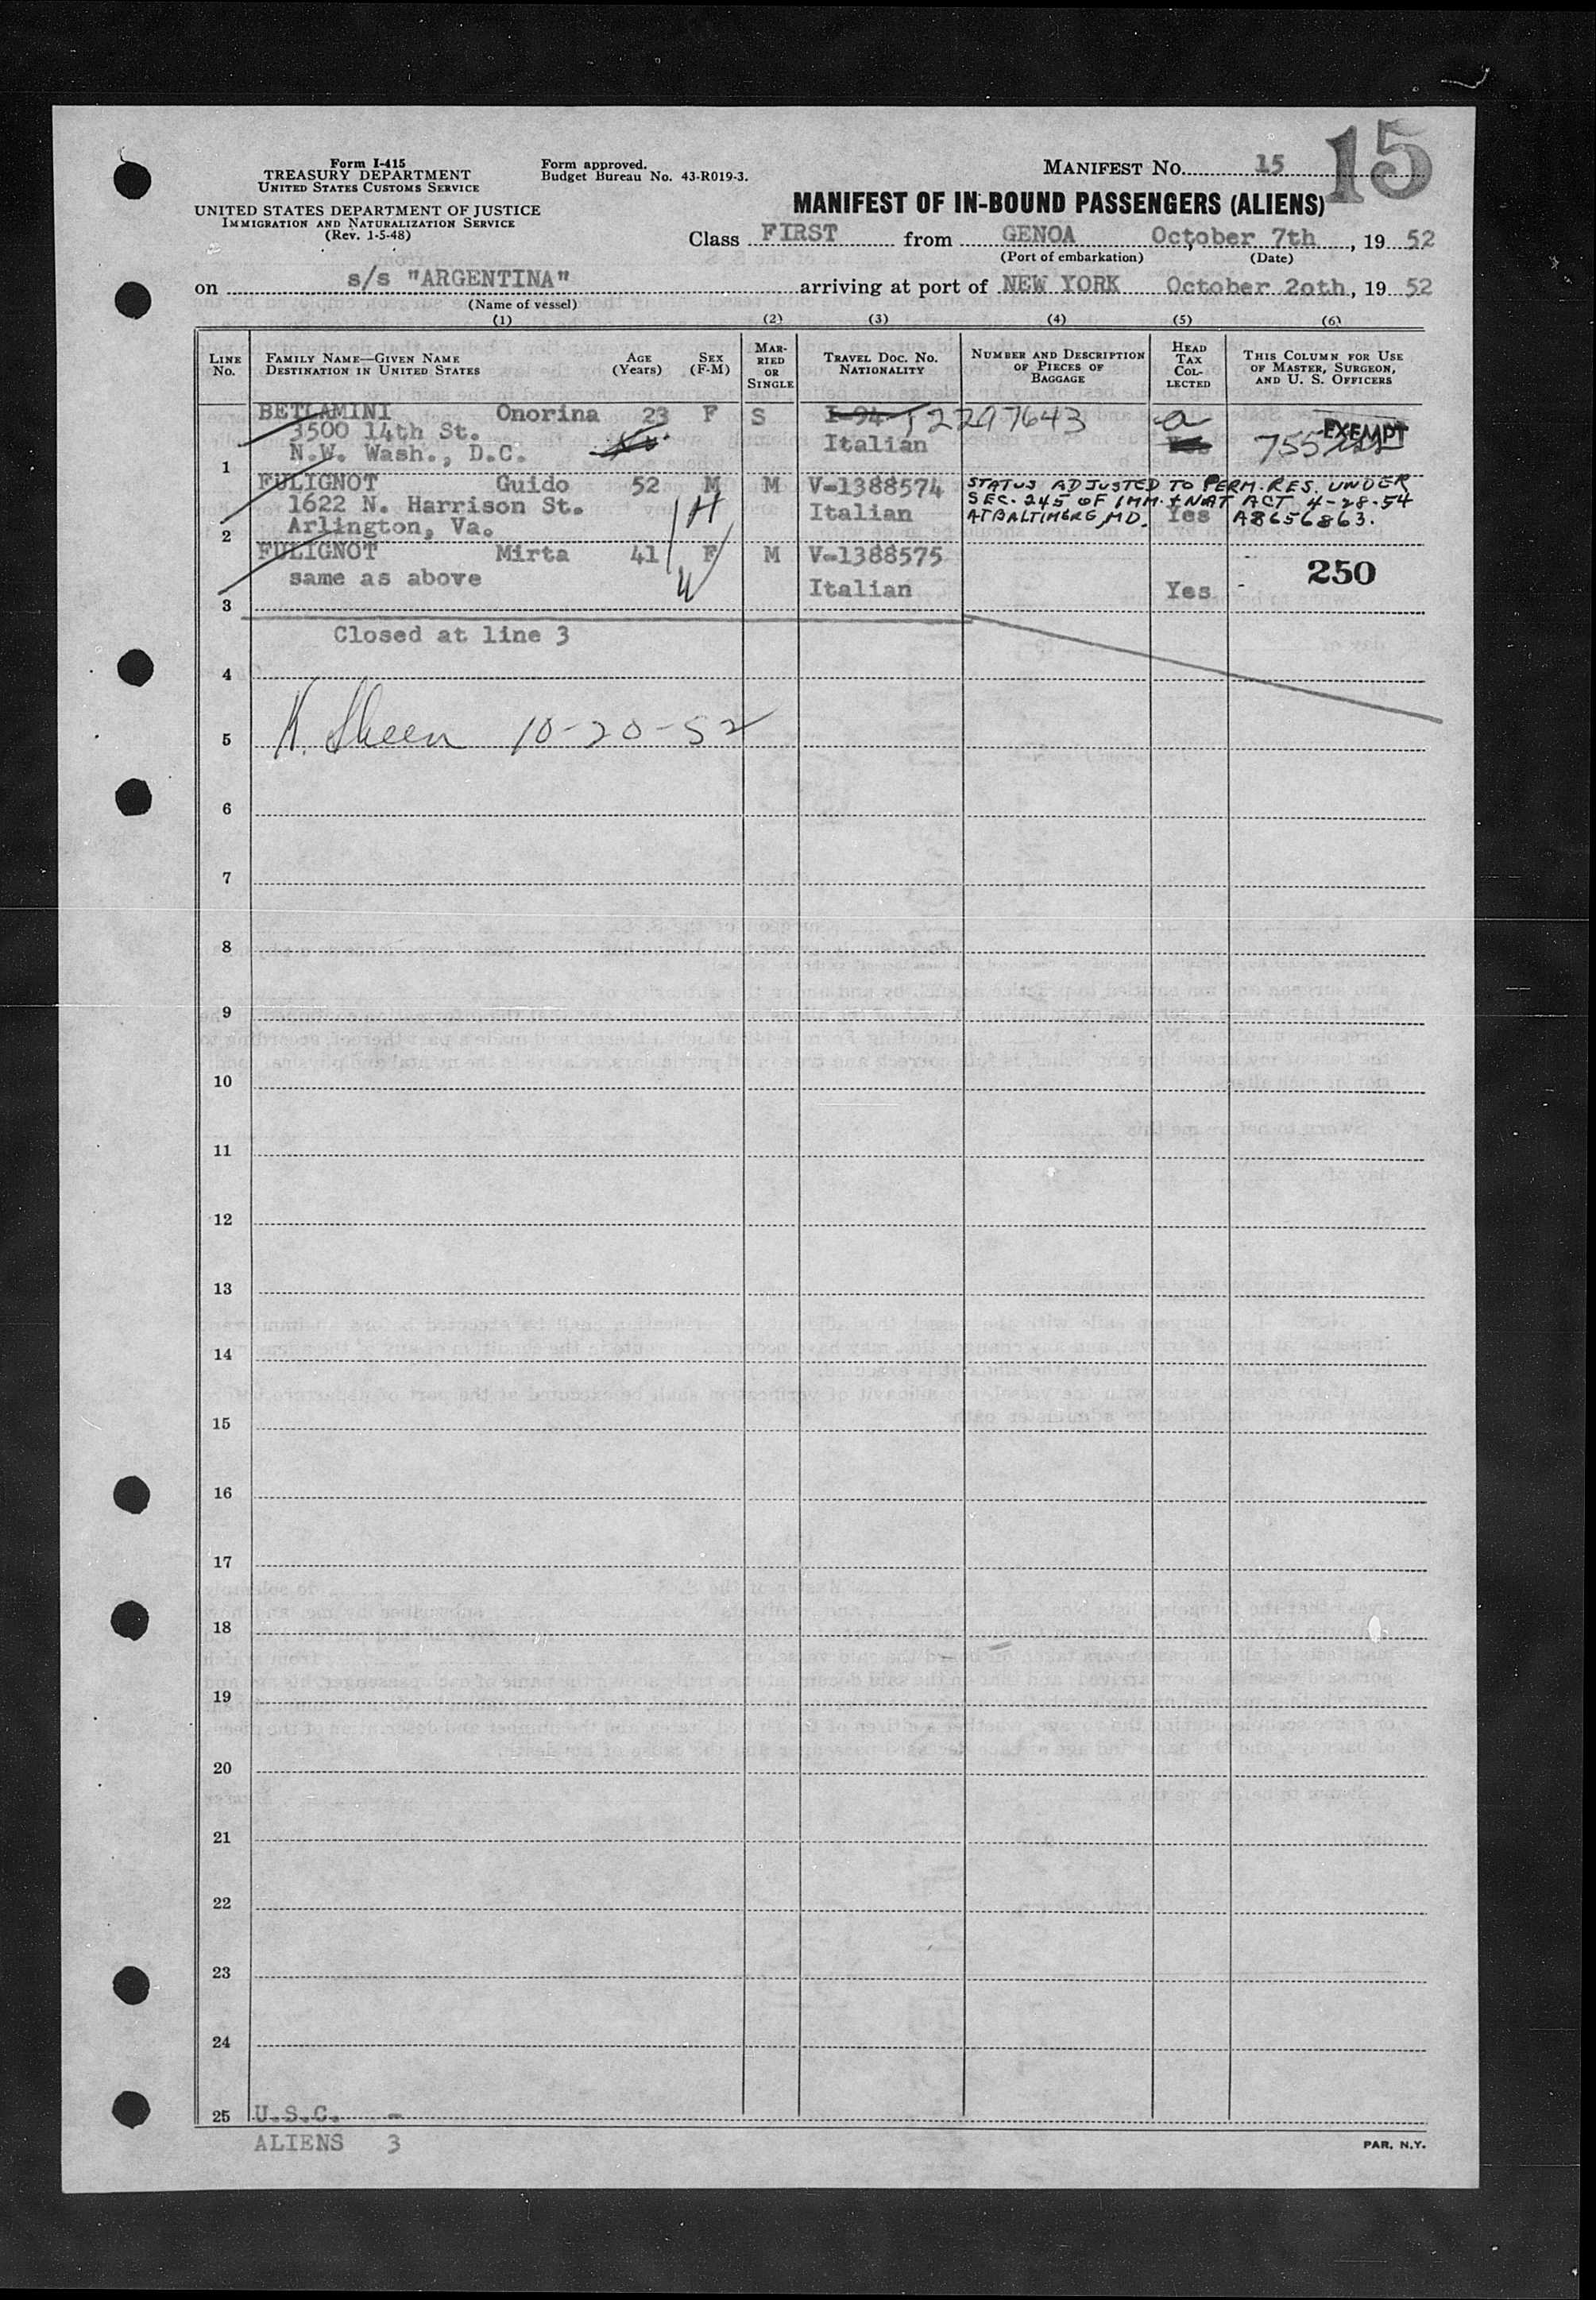 15
Form I-415
TREASURY DEPARTMENT
UNITED STATES CUSTOMS SERVICE
UNITED STATES DEPARTMENT OF JUSTICE
IMMIGRATION AND NATURALIZATION SERVICE
(Rev. 1-5-48)
Form approved.
Budget Bureau No. 43-R019-3.
MANIFEST NO. 15
MANIFEST OF IN-BOUND PASSENGERS (ALIENS)
Class FIRST from GENOA October 7th, 19 52
(Port of embarkation) (Date)
on s/s "ARGENTINA" arriving at port of NEW YORK October 2oth, 19 52
(Name of vessel)
(1) (2) (3) (4) (5) (6)
LINE NO.
FAMILY NAME—GIVEN NAME
DESTINATION IN UNITED STATES
AGE (Years)
SEX (F-M)
MARRIED OR SINGLE
TRAVEL DOC. NO.
NATIONALITY
NUMBER AND DESCRIPTION OF PIECES OF BAGGAGE
HEAD TAX COLLECTED
THIS COLUMN FOR USE OF MASTER, SURGEON, AND U. S. OFFICERS
BETLAMINI Onorina 23 F S I-94 T2297643 a
3500 14th St. Italian 755 EXEMPT
N.W. Wash., D.C.
1
FULIGNOT Guido 52 M M V-1388574 STATUS ADJUSTED TO PERM. RES. UNDER
1622 N. Harrison St. H Italian SEC. 245 OF IMM. & NAT ACT 4-28-54
Arlington, Va. AT BALTIMORE, MD. Yes A8656863.
2
FULIGNOT Mirta 41 F M V-1388575
same as above W Italian Yes 250
3
Closed at line 3
4
K. Sheen 10-20-52
5
6
7
8
9
10
11
12
13
14
15
16
17
18
19
20
21
22
23
24
25 U.S.C. -
ALIENS 3
PAR. N.Y.